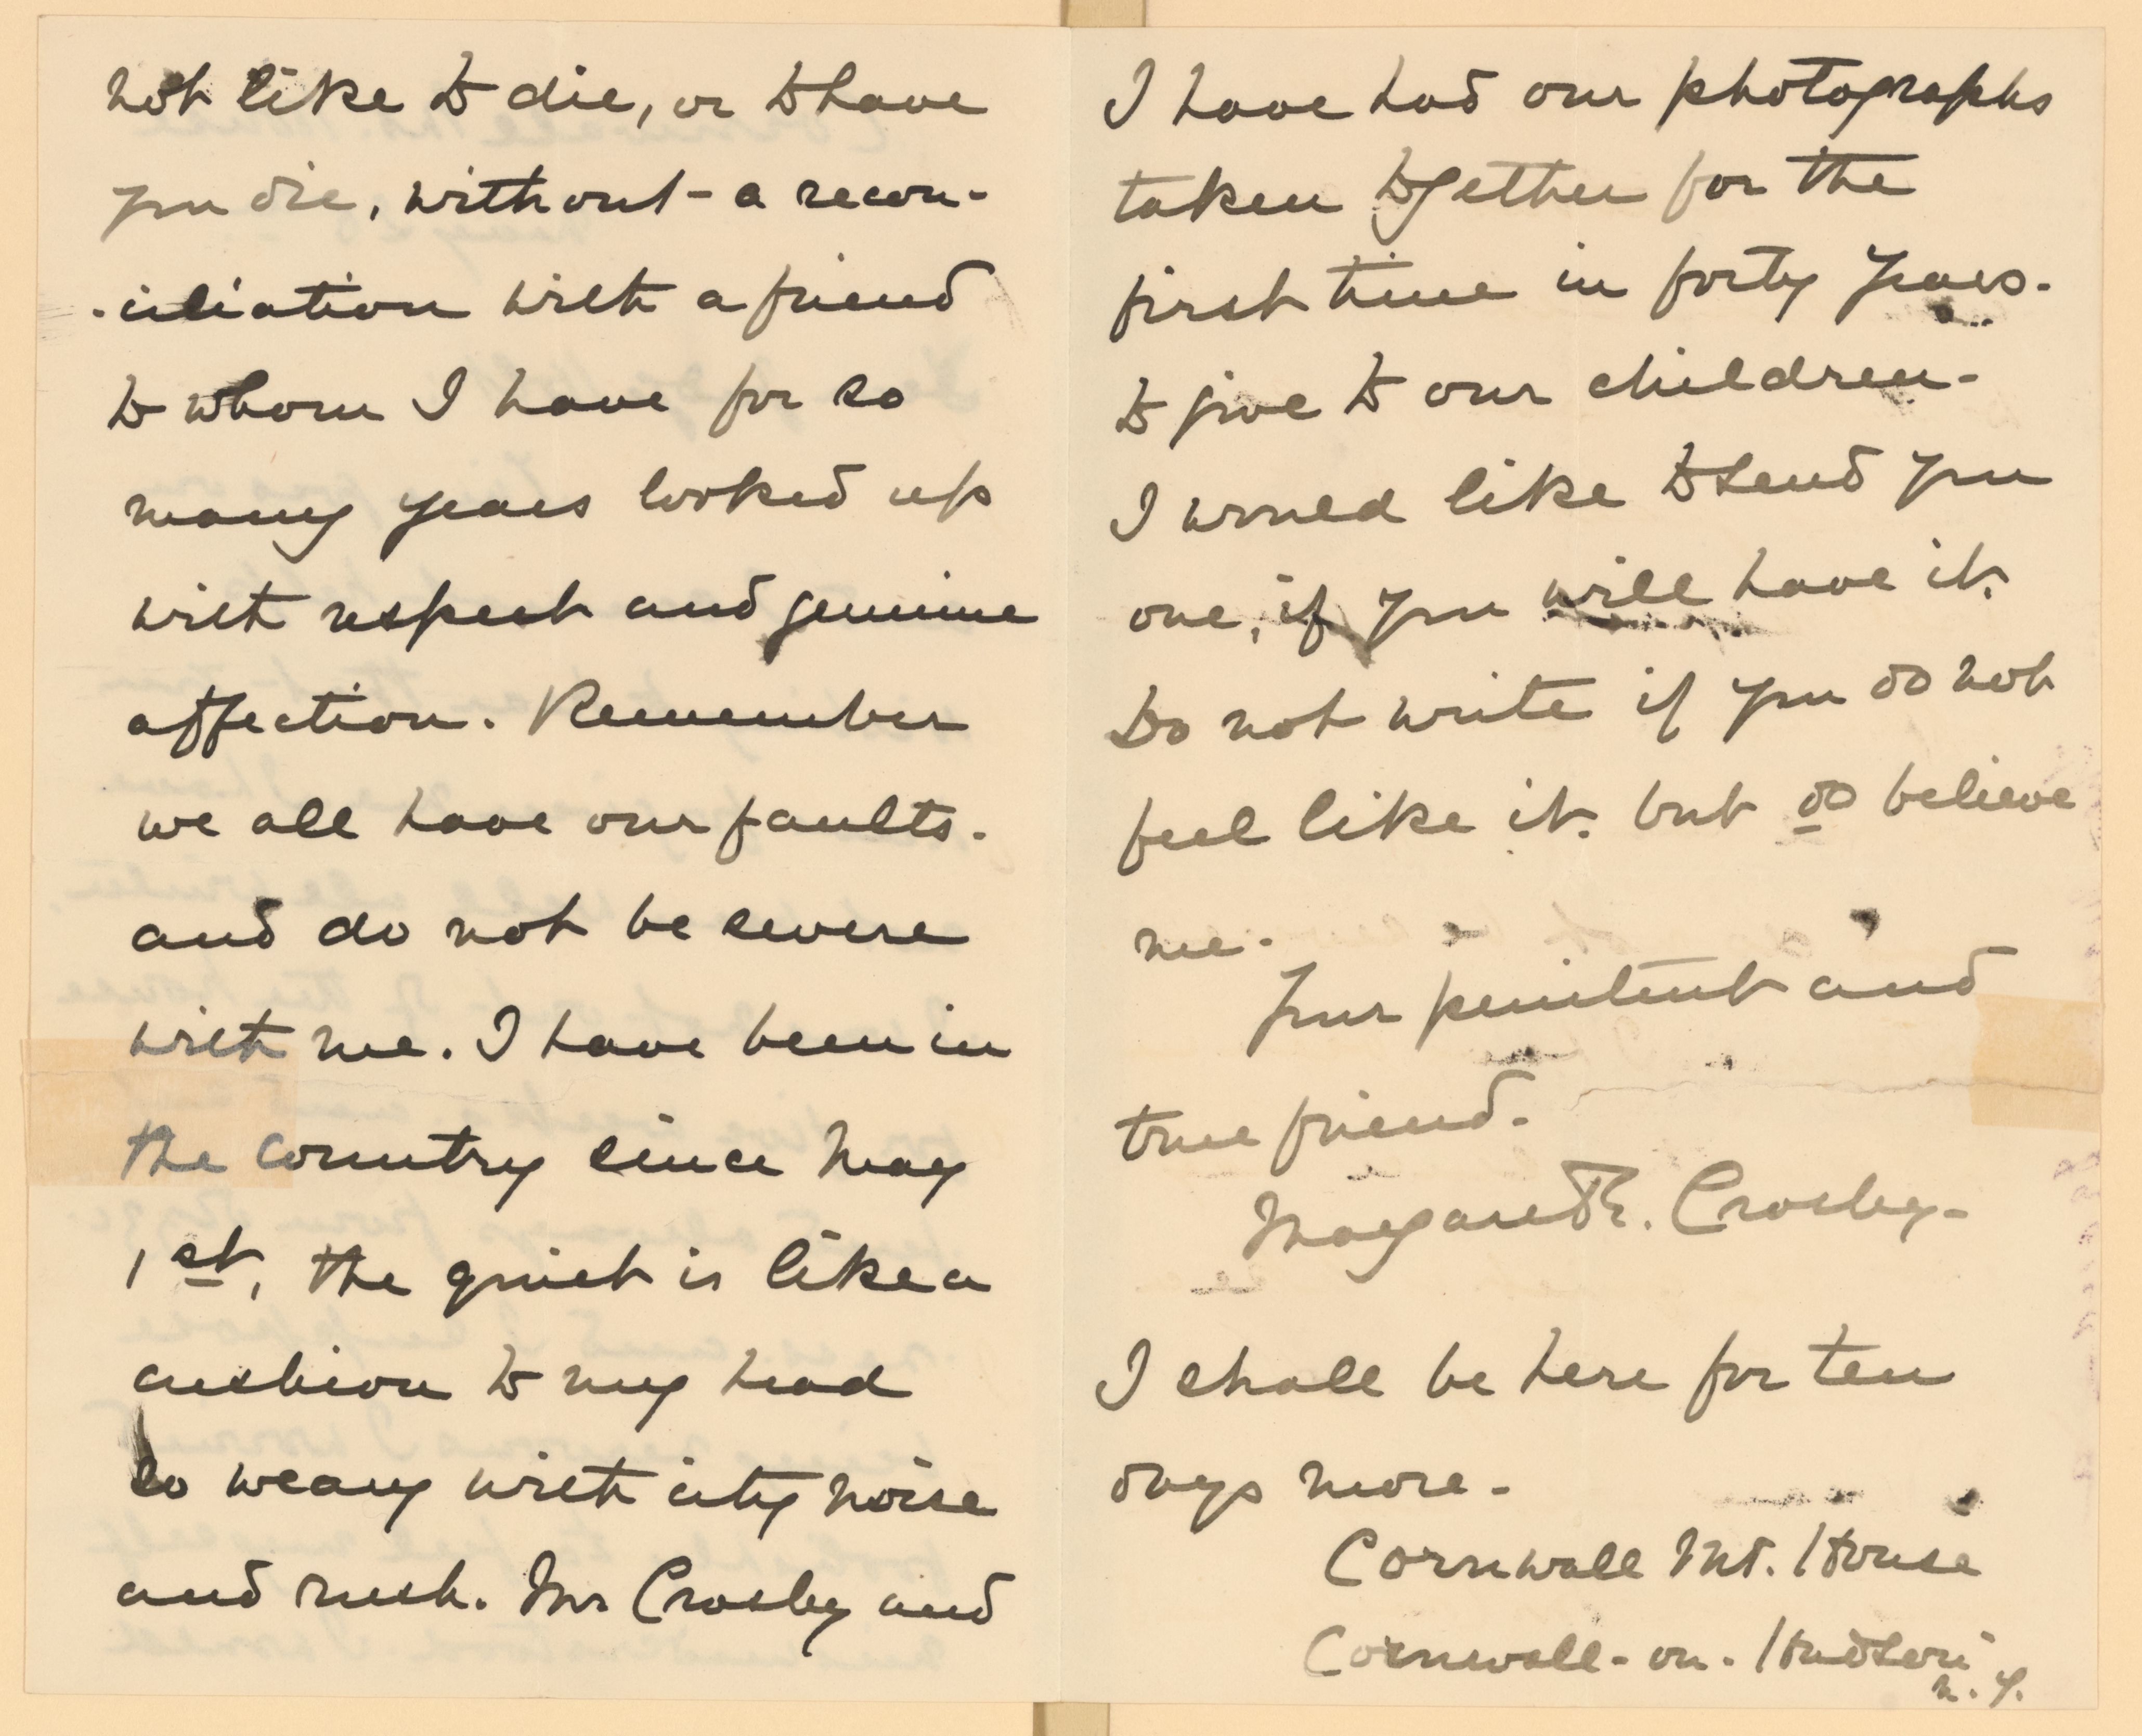 not like to die, or to have
you die, without - a recon-
-ciliation with a friend
to whom I have for so
many years looked up
with respect and genuine
affection. Remember
we all have our faults.
and do not be severe
with me. I have been in
the country since May
1st, the quiet is like a
cushion to my head
so weary with city noise
and rush. Mr Crosby and
I have had our photographs
taken together for the
first time in forty years.
to give to our children-
I would like to send you
one, if you will have it.
Do not write if you do not
feel like it. but do believe
me.
Your penitent and
true friend.
Margaret Crosby-
I shall be here for ten
days more.
Cornwall Mt. House
Cornwall-on-Hudson
N.Y.